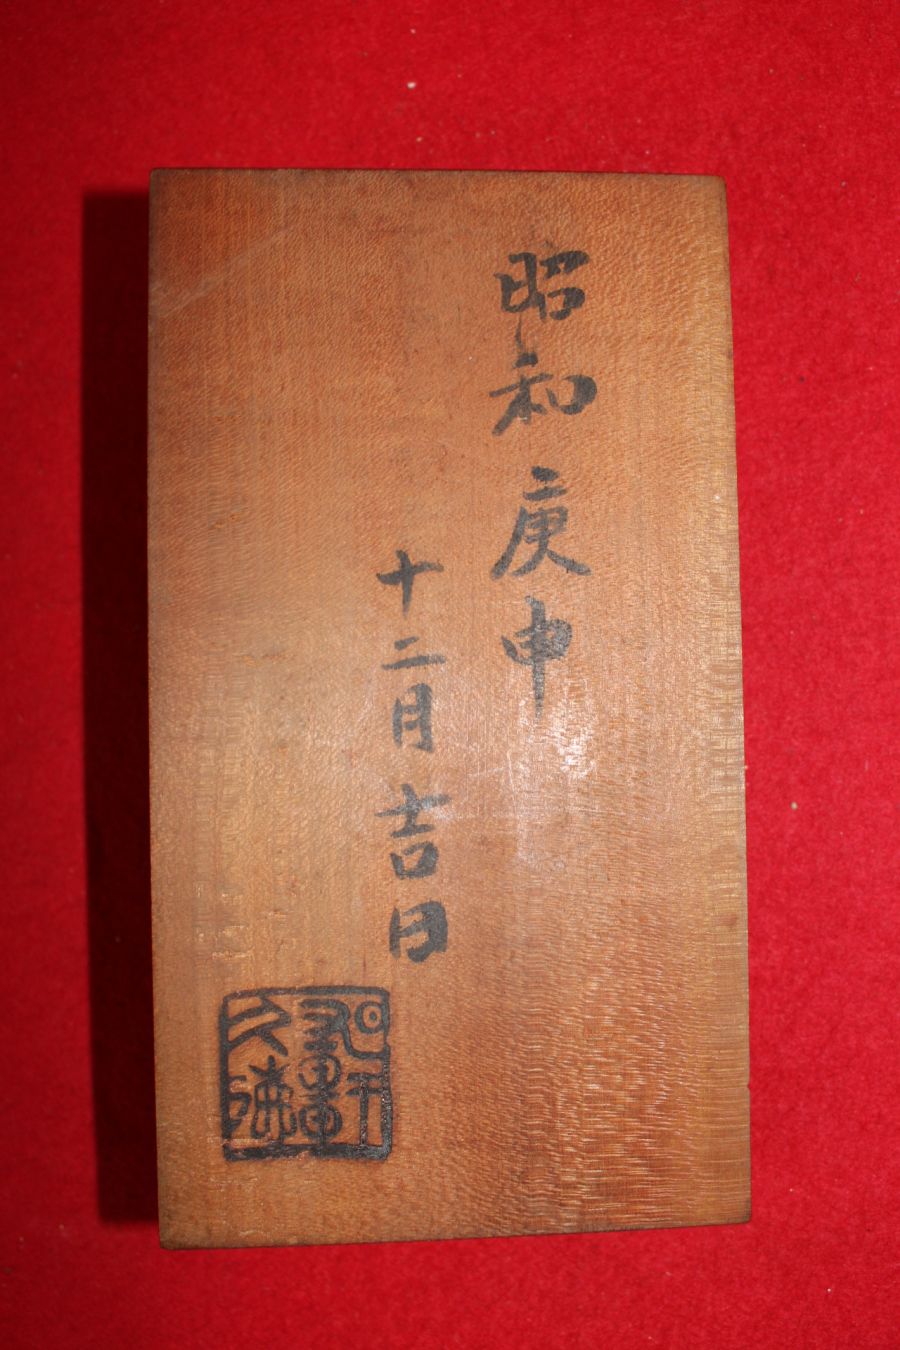 昭和庚申
十二月吉日